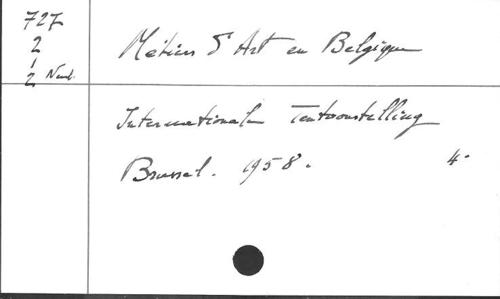 727
2
1
2 Ned.
Métiers d'Art en Belgique
Internationale Tentoonstelling
Brussel. 1958. 4°